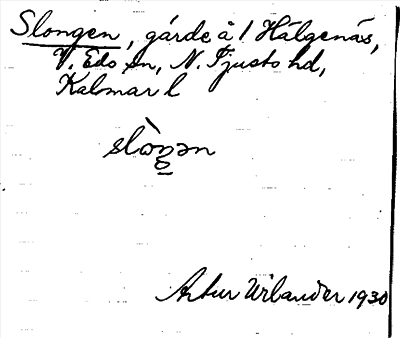 Slongen, gärde å 1 Hälgenäs,
V. Eds sn, N. Tjusts hd,
Kalmar l
slòŋən
Artur Wilander 1930